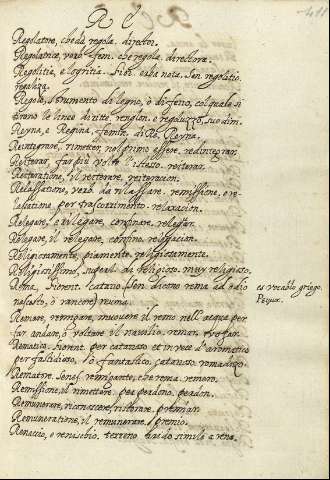 R e
Regolatore, che dà regola. director.
Regolatrice, verb. fem. che regola. directora.
Regolitia, e logritia. Sien. erba nota. Sen regolitio.
regaliza.
Regolo, strumento di legno, ò di ferro, col quale si
tirano le linee diritte, renglon. e regoluzzo, suo dim.
Reyna, e Regina, femin. di Rè. Reyna.
Reintegrare, rimetter, nel primo essere, redintegrar.
Reiterar, far più volte l'istesso. reiterar.
Reiteratione, il reiterare, reiteracion.
Relassatione, verb. da rilassare. remissione, e re-
lassatione, per trascorrimento. relaxacion.
Relegare, e rilegare, confinare. relegar.
Relegare, il relegare, confino. relegacion.
Religiosamente, piamente. religiosamente.
Religiosissimo, superl. di religioso. muy religioso.
Rema, fiorent. catarro. Sen. dicono rema ad odio
nascosto, ò rancore) reuma.
es vocablo griego.
Remare, remigare, muovere il remo nell'acqua per
far andare, ò voltare il navilio. remar.
Rematico. fiorent. per catarroso et in vece d'aromatico
per fastidioso, ò fantastico, catarroso, romadizado.
Rematore. Senes. remigante, che rema. remero.
Remissione, il rimettere, per perdono. perdon.
Remunerare, riconoscere, ristorare. premiar.
Remuneratione, il remunerare. premio.
Renaccio, e renischio, terreno arido simile a rena.